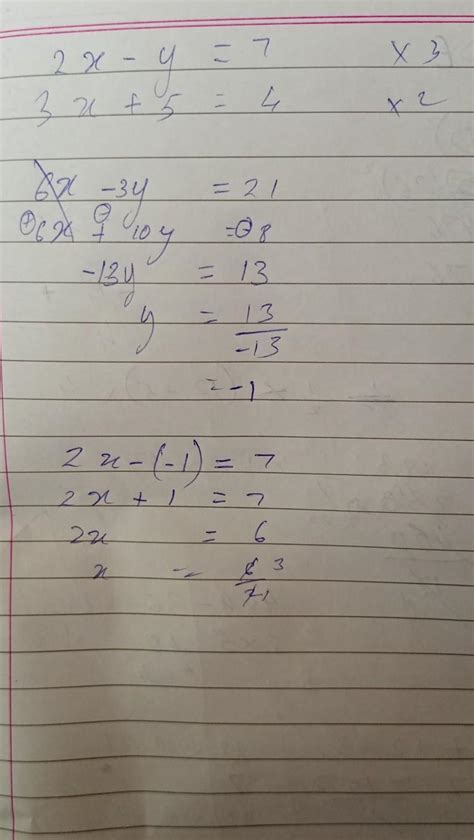 2x - y = 7 × 3
3x + 5 = 4 × 2
6x - 3y = 21
6x + 10y = 8
-13y = 13
y = 13/-13
= -1
2x - (-1) = 7
2x + 1 = 7
2x = 6
x = 6 3